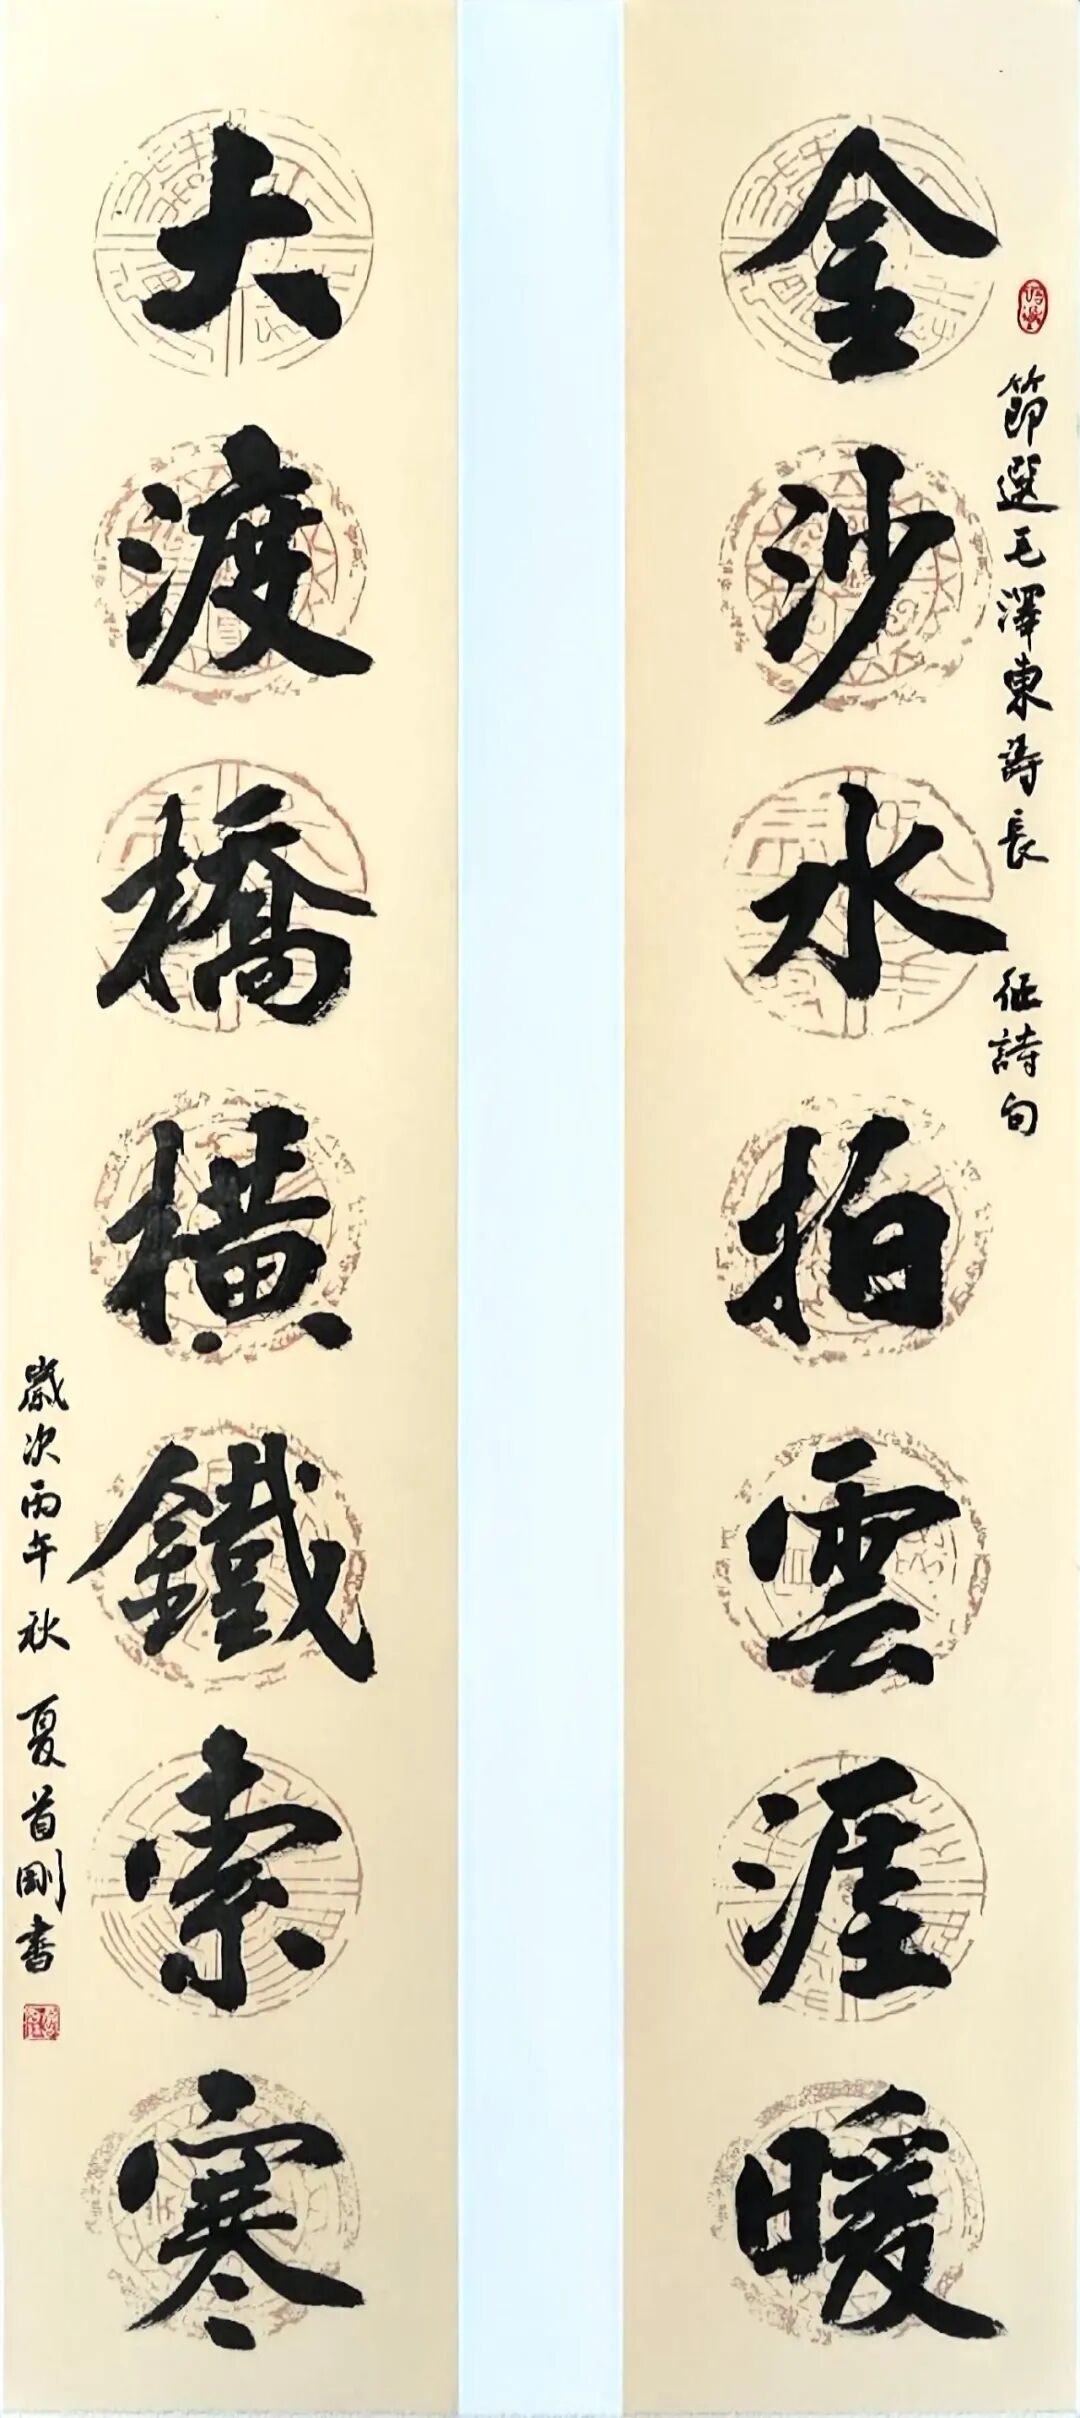 金沙水拍雲涯暖
節選毛澤東詩長征詩句
大渡橋橫鐵索寒
歲次丙午秋 夏首剛書